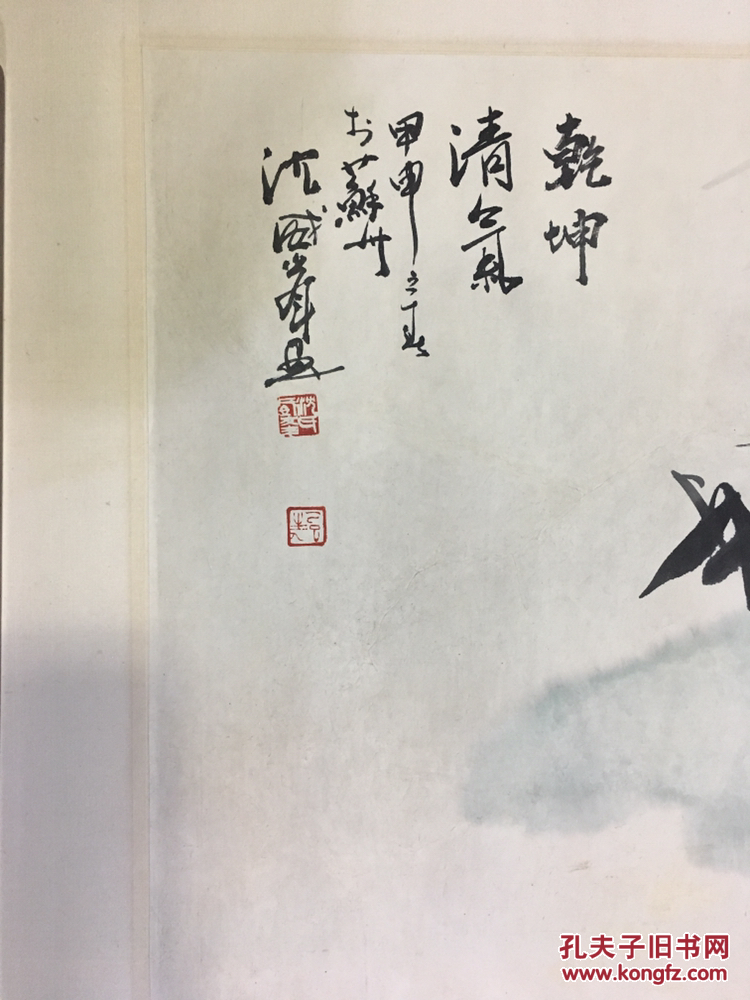 乾坤
清氣
甲申之春
於蘇州
沈威峰
孔夫子旧书网
www.kongfz.com